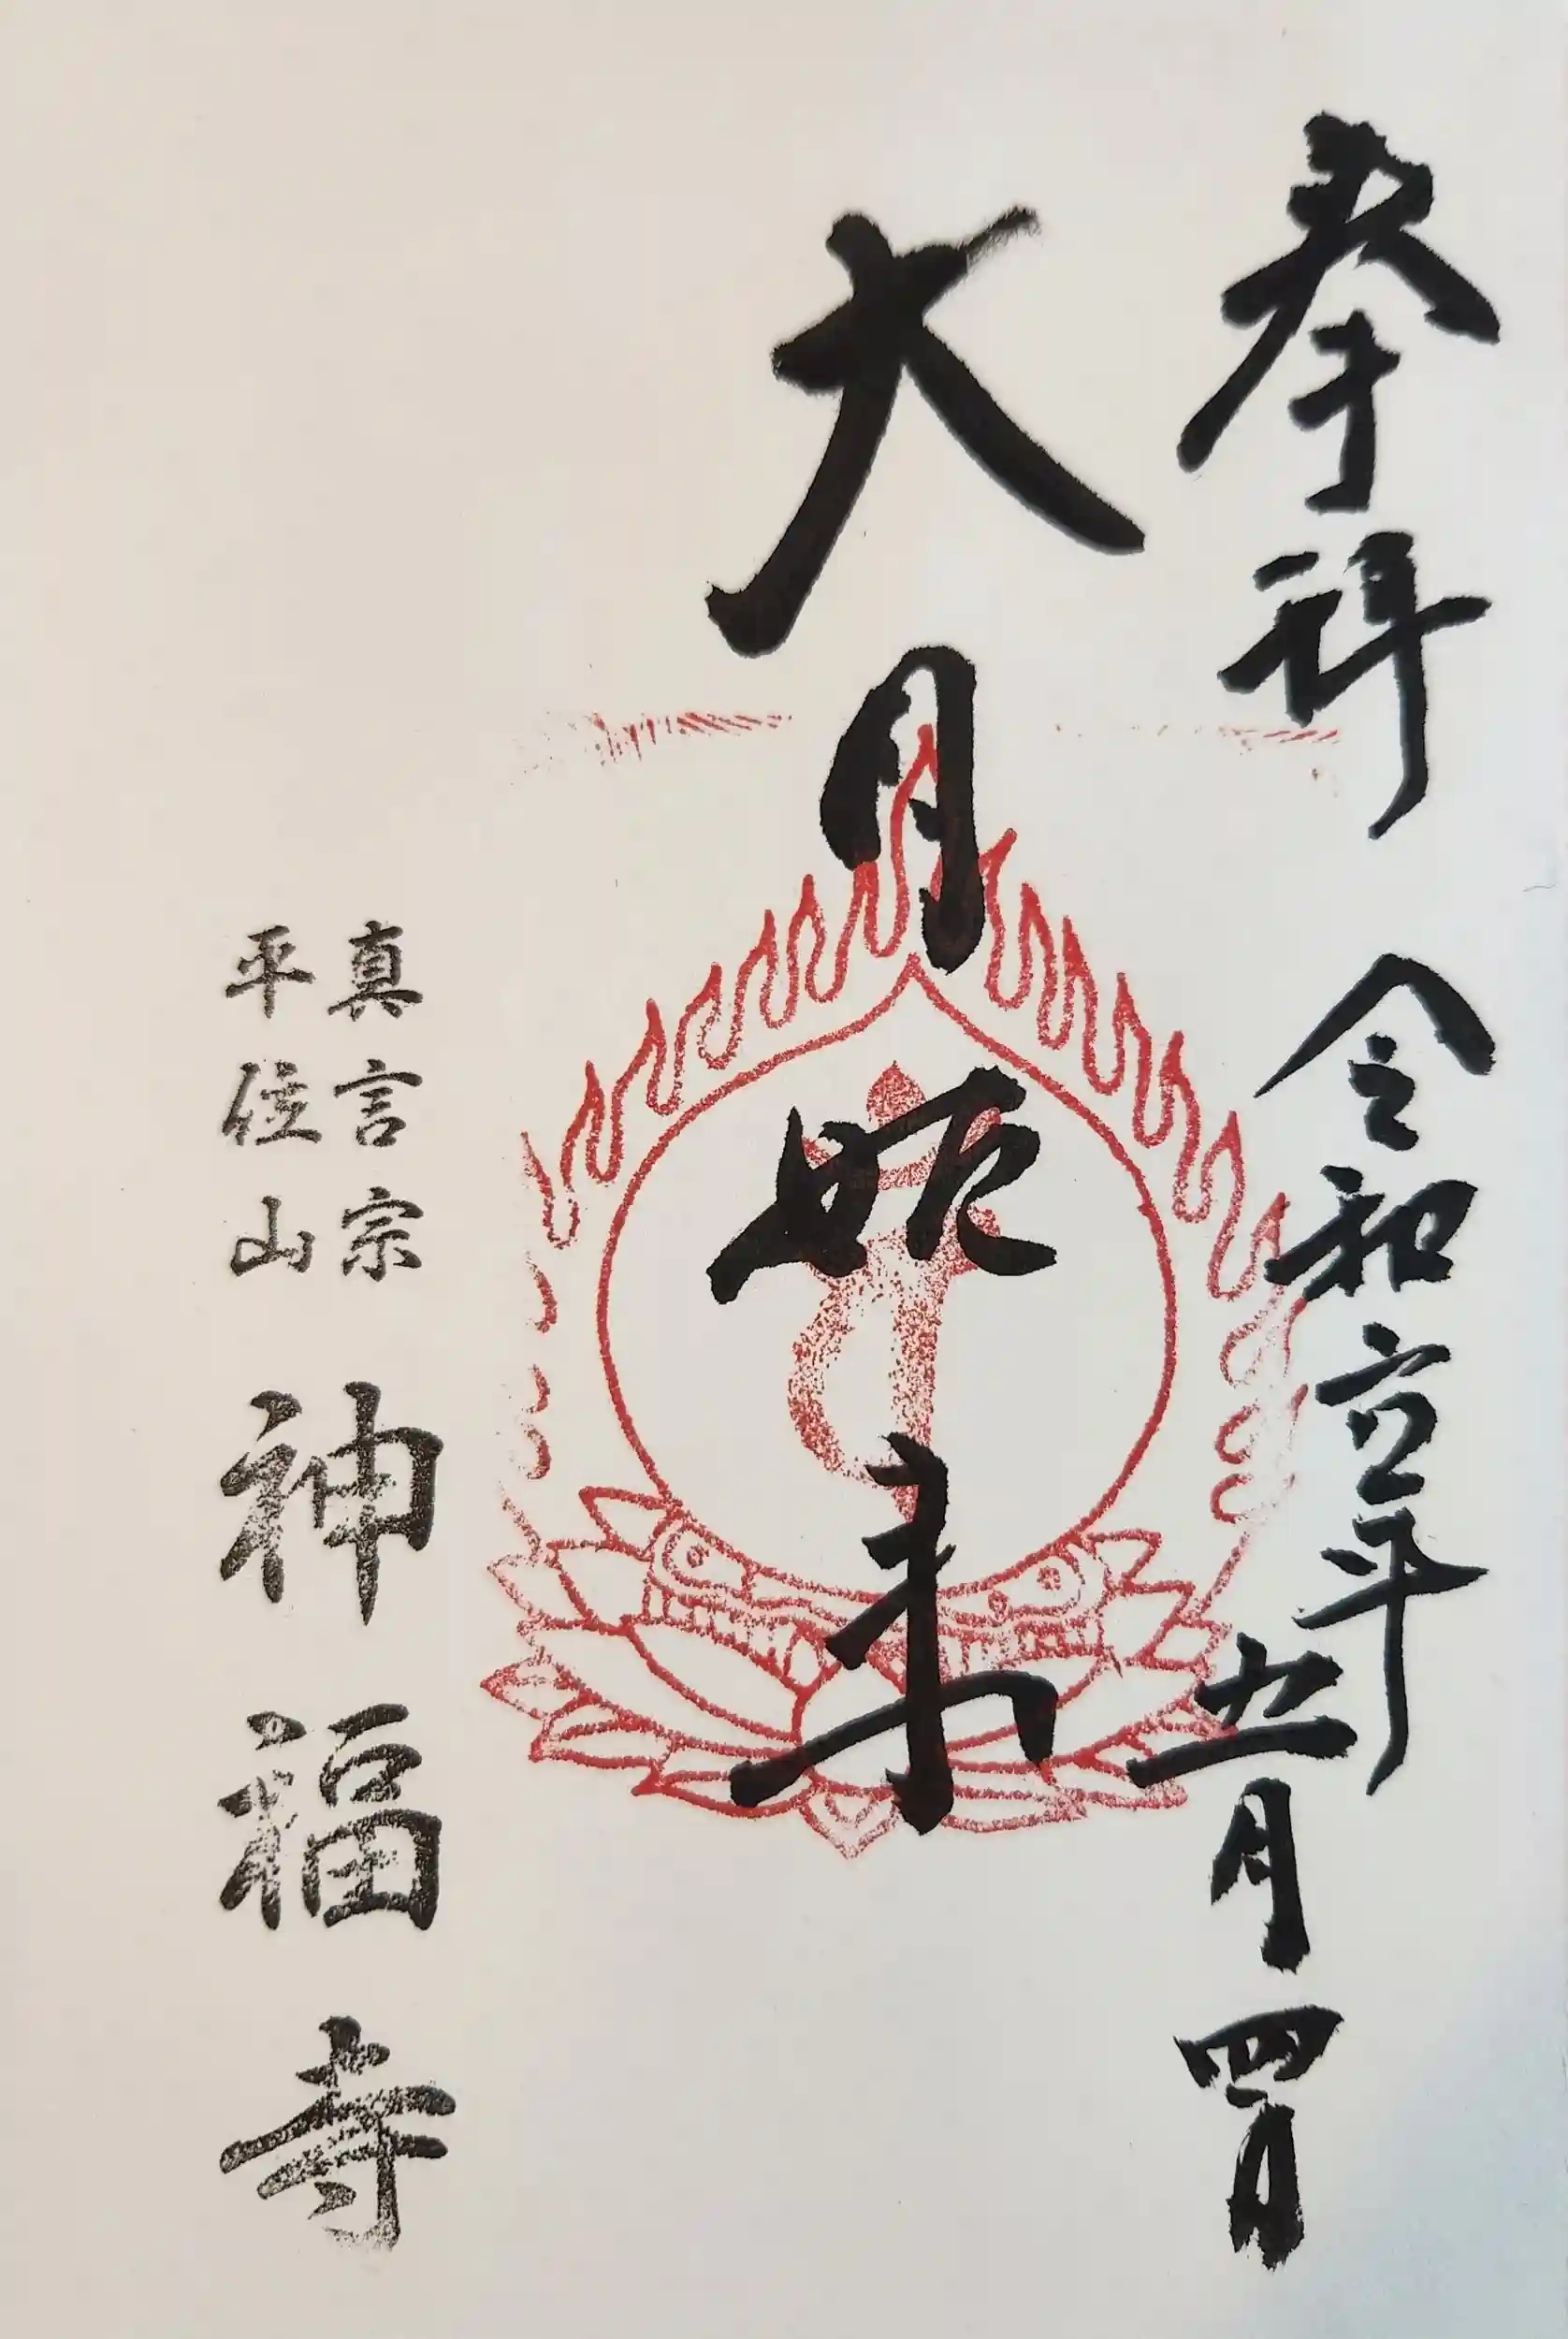 奉拝 令和六年九月四日
大日如来
真言宗
平位山
神福寺